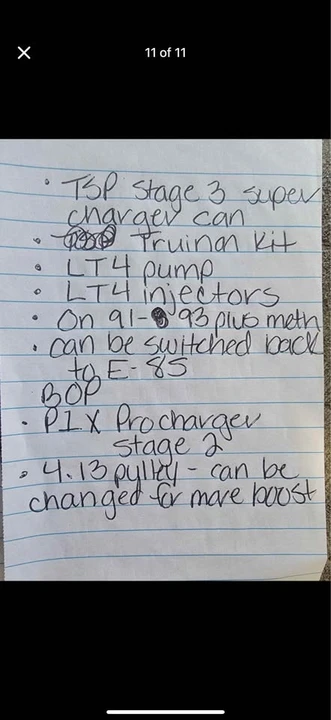 11 of 11
• TSP Stage 3 super
charger can
• Truinan Kit
• LT4 pump
• LT4 injectors
• On 91- 93 plus meth
• can be switched back
to E-85
BOP
• P1X Procharger
stage 2
• 4.13 pylley - can be
changed for more boost